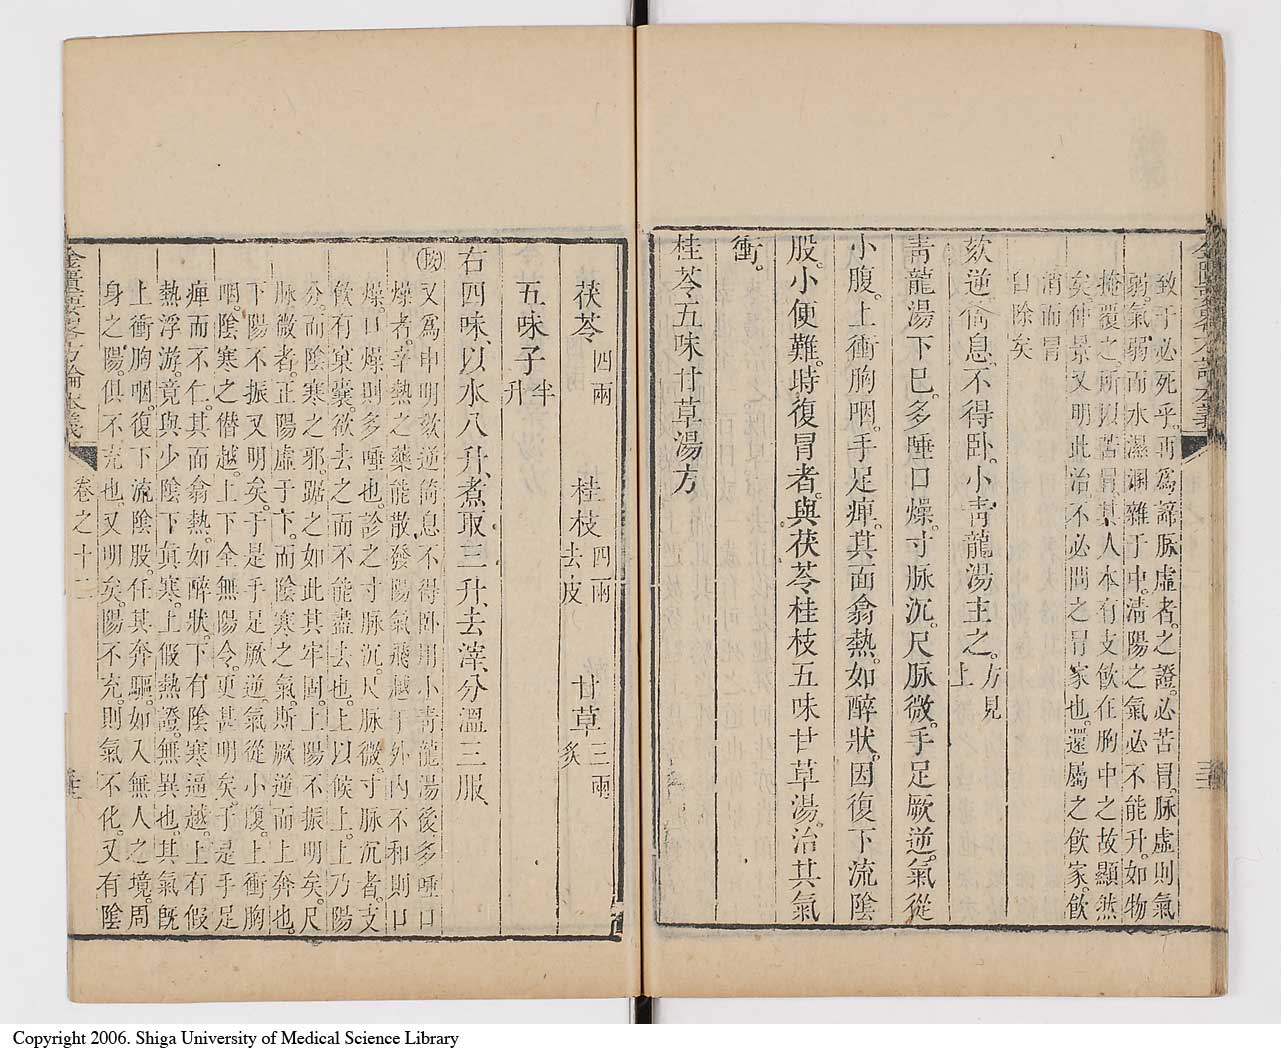 致于必死乎。再爲諦脈虛者。之證。必苦冒。脈虛則氣
弱。氣弱而水濕溷雜于中。清陽之氣必不能升。如物
掩覆之。所以苦冒。其人本有支飲在胸中之故顯然
矣。仲景又明此治。不必問之冒家也。還屬之飲家。飲
消而冒
自除矣
欬逆倚息。不得臥。小青龍湯主之。方見上
青龍湯下已。多唾口燥。寸脈沉。尺脈微。手足厥逆。氣從
小腹。上衝胸咽。手足痺。其面翕熱。如醉狀。因復下流陰
股。小便難。時復冒者。與茯苓桂枝五味甘草湯。治其氣
衝。
桂苓五味甘草湯方
茯苓四兩 桂枝四兩去皮 甘草三兩炙
五味子半升
右四味、以水八升、煮取三升、去滓、分溫三服、
按又爲申明欬逆倚息不得臥用小青龍湯後多唾口
燥者。辛熱之藥能散發陽氣飛越于外内不和則口
燥。口燥則多唾也。診之寸脈沉。尺脈微。寸脈沉者。支
飲有窠囊。欲去之而不能盡去也。上以候上。上乃陽
分。而陰寒之邪。踞之如此其牢固。上陽不振明矣。尺
脈微者。正陽虛于下。而陰寒之氣。斯厥逆而上奔也。
下陽不振又明矣。于是手足厥逆。氣從小腹。上衝胸
咽。陰寒之僭越。上下全無陽令。更甚明矣。于是手足
痺而不仁。其面翕熱。如醉狀。下有陰寒逼越。上有假
熱浮游。竟與少陰下眞寒。上假熱證。無異也。其氣旣
上衝胸咽。復下流陰股。任其奔驅。如入無人之境。周
身之陽。俱不充也。又明矣。陽不充。則氣不化。又有陰
金匱要畧方論本義
卷之十二